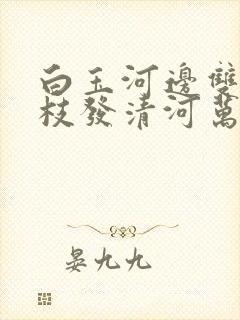 白玉河邊雙
枝發清河萬
晏九九